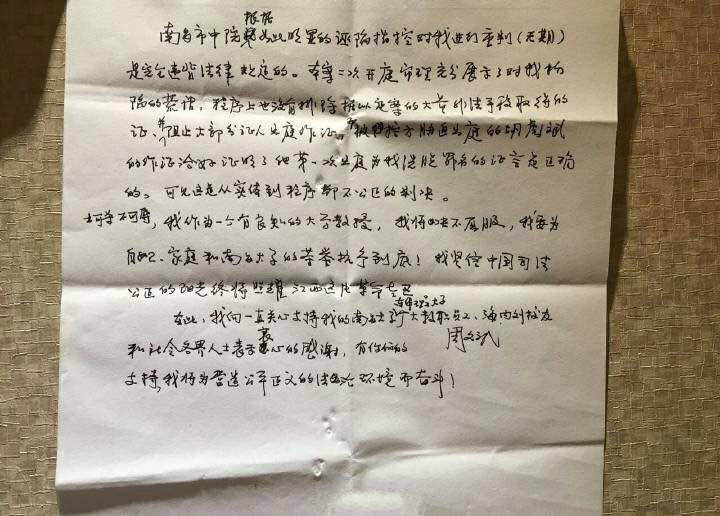 根据
南昌市中院如此明显的诬陷指控对我进行重判(无期)
是完全违背法律规定的。本案二次开庭审理充分展示了对我构
陷的荒谬,程序上也没有排除据以定案的大量非法手段取得的
证,并阻止大部分证人出庭作证。被控方胁迫出庭的胡彪斌
的作证恰好证明了他第一次出庭为我洗脱罪名的证言是正确
的。可见这是从实体到程序都不公正的判决。
士可杀不可辱,我作为一个有良知的大学教授,我将坚决不屈服,我要为
自己、家庭和南昌大学的荣誉抗争到底!我坚信中国司法
公正的阳光终将照耀江西这片革命
在此,我向一直关心支持我的南昌大学广大教职员工、海内外校友
和社会各界人士表示衷心的感谢,有你们的
周文斌
支持,我将为营造公平正义的法治环境而奋斗!